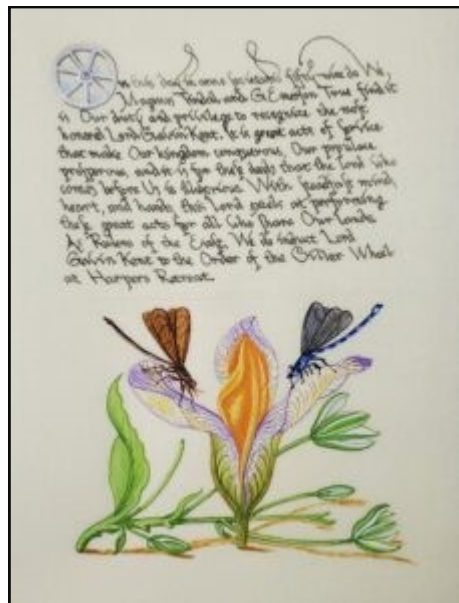 On this day in anno societatis fifty-nine do We,
Magnus Tindal and G Emerson True find it
is Our duty and privilege to recognize the most
honored Lord Gavin Kent. It is great acts of service
that make Our kingdom conquerous, Our populace
prosperous, and it is for these deeds that the Lord who
comes before Us is illustrious. With steadfast mind,
heart, and hands this Lord excels at performing
these great acts for all who share Our lands
As Rulers of the we do induct Lord
Gavin Kent to the Order of the Silver Wheel
at Harpers Retreat.